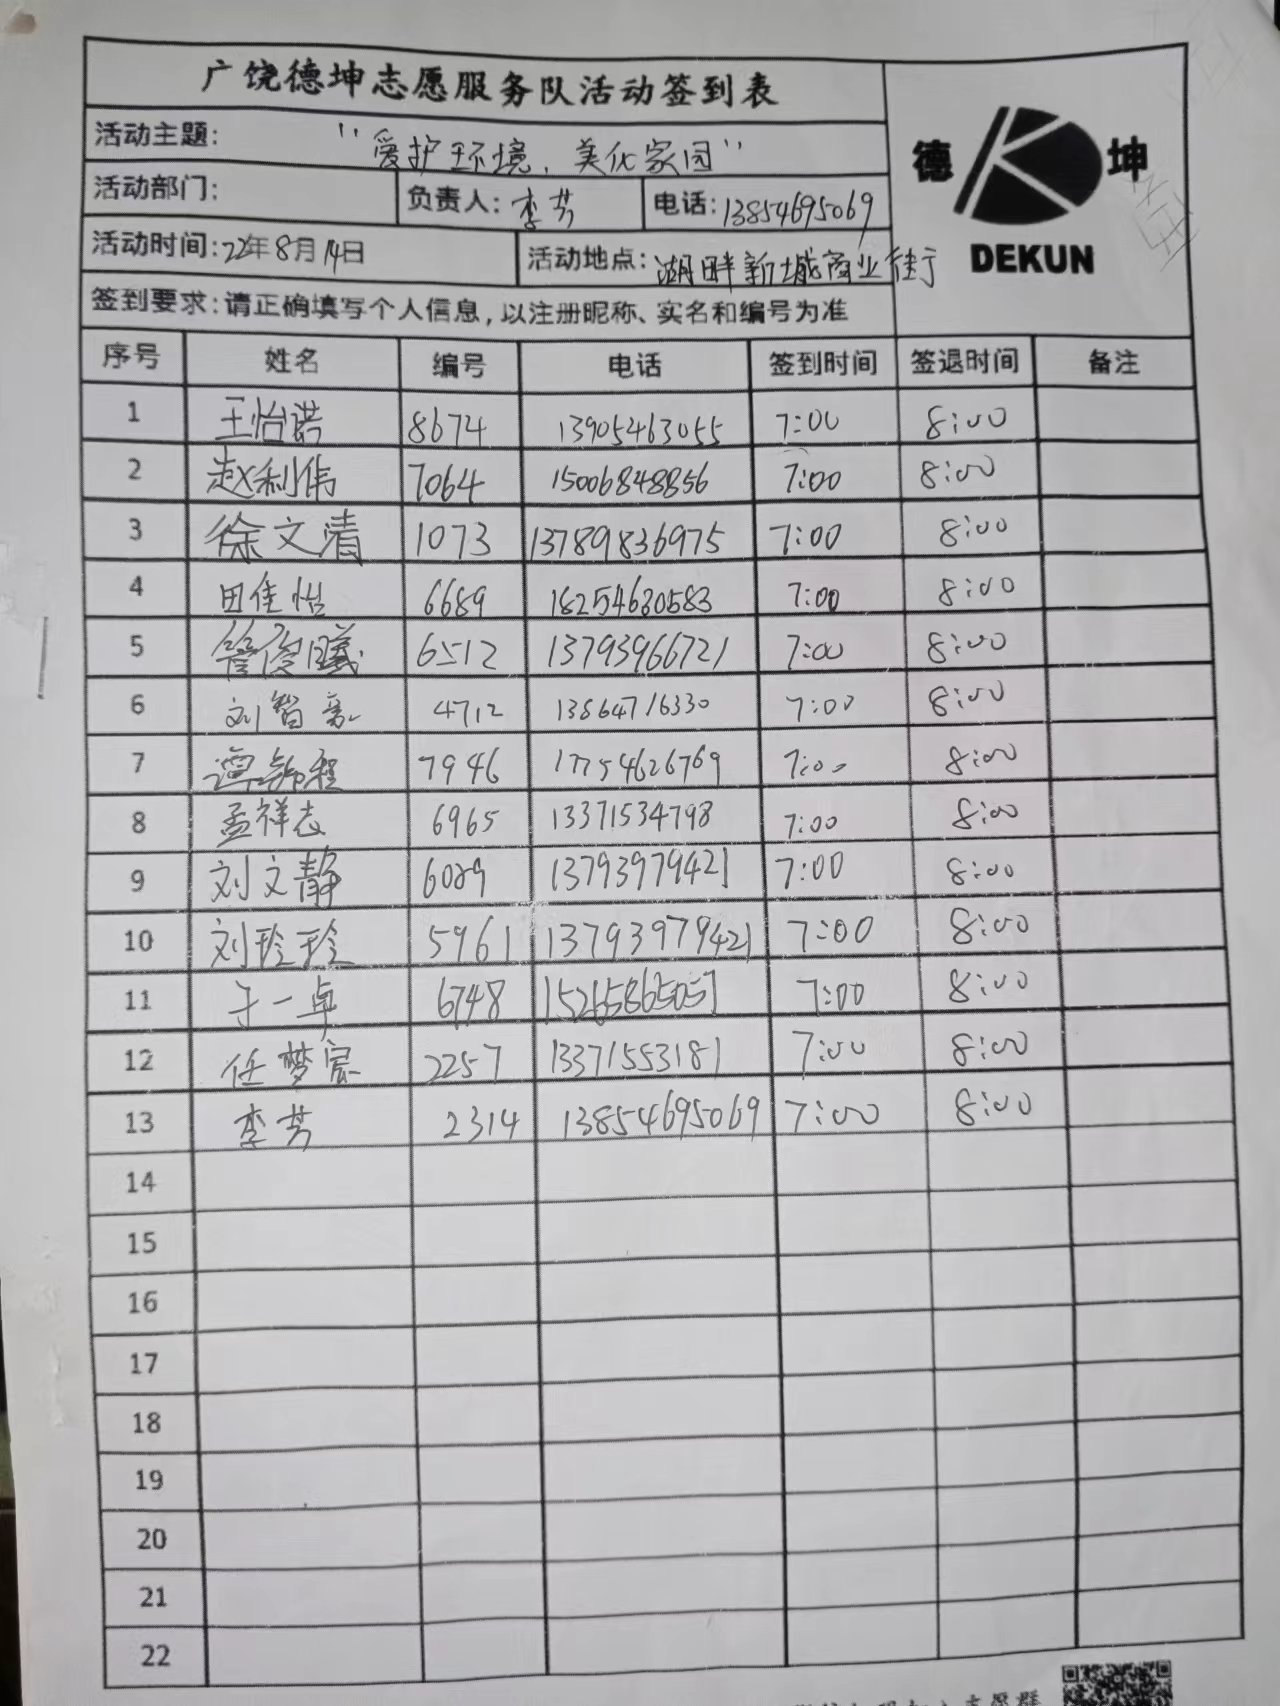 广饶德坤志愿服务队活动签到表
活动主题: "爱护环境、美化家园"
活动部门: 负责人: 李芳 电话: 13854695069
活动时间: 22年8月14日 活动地点: 湖畔新城商业街
德 坤
DEKUN
签到要求: 请正确填写个人信息, 以注册昵称、实名和编号为准
序号 姓名 编号 电话 签到时间 签退时间 备注
1 王怡诺 8674 13905463055 7:00 8:00
2 赵利伟 7064 15006848856 7:00 8:00
3 徐文清 1073 13789836975 7:00 8:00
4 田佳怡 6689 18254630583 7:00 8:00
5 管俊曦 6512 13793966721 7:00 8:00
6 刘智 4712 13864716330 7:00 8:00
7 谭锦程 7946 17754626769 7:00 8:00
8 孟祥志 6965 13371534798 7:00 8:00
9 刘文静 6089 13793979421 7:00 8:00
10 刘玲玲 5961 13793979421 7:00 8:00
11 于一卓 6748 15265865057 7:00 8:00
12 任梦宸 2257 13371553181 7:00 8:00
13 李芳 2314 13854695069 7:00 8:00
14
15
16
17
18
19
20
21
22